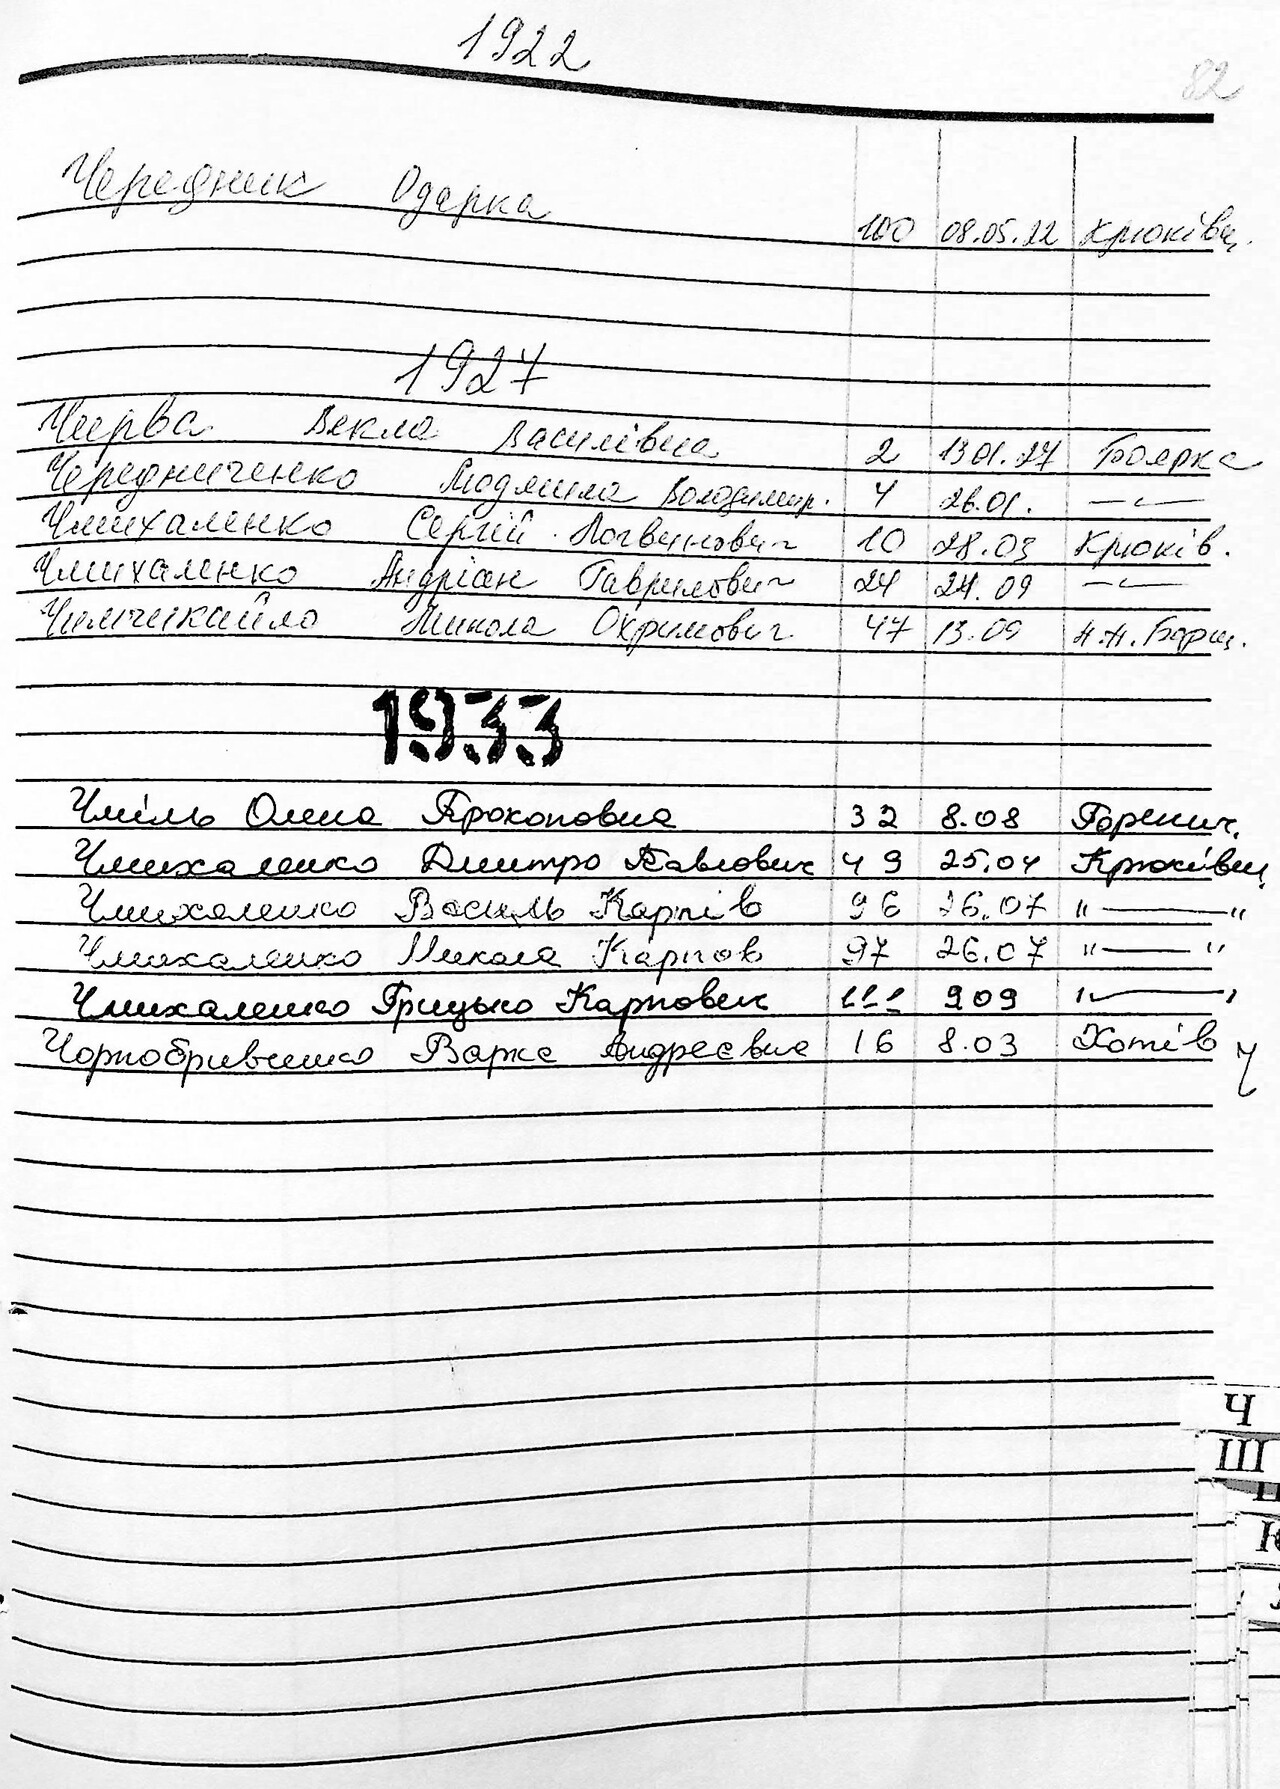 1922
82
Чередник Одарка 100 08.05.22 Крюківщ.
1927
Чирва Векла Василівна 2 13.01.27 Боярка
Чередниченко Людмила Володимир. 4 26.01. —"—
Чмихаленко Сергій Логвинович 10 28.03 Крюків.
Чмихаленко Андріан Гаврилович 24 24.09 —"—
Чимчикайло Микола Охримович 47 13.09 П.П. Борщ.
1933
Чміль Олена Прокоповна 32 8.08 Горенич.
Чмихаленко Дмитро Павлович 49 25.04 Крюківщ
Чмихаленко Василь Карпів 96 26.07 "——"
Чмихаленко Микола Карпов 97 26.07 "——"
Чмихаленко Грицько Карпович 111 909 "——"
Чорнобривченко Варка Андреєвна 16 8.03 Хотів
Ч
Ш